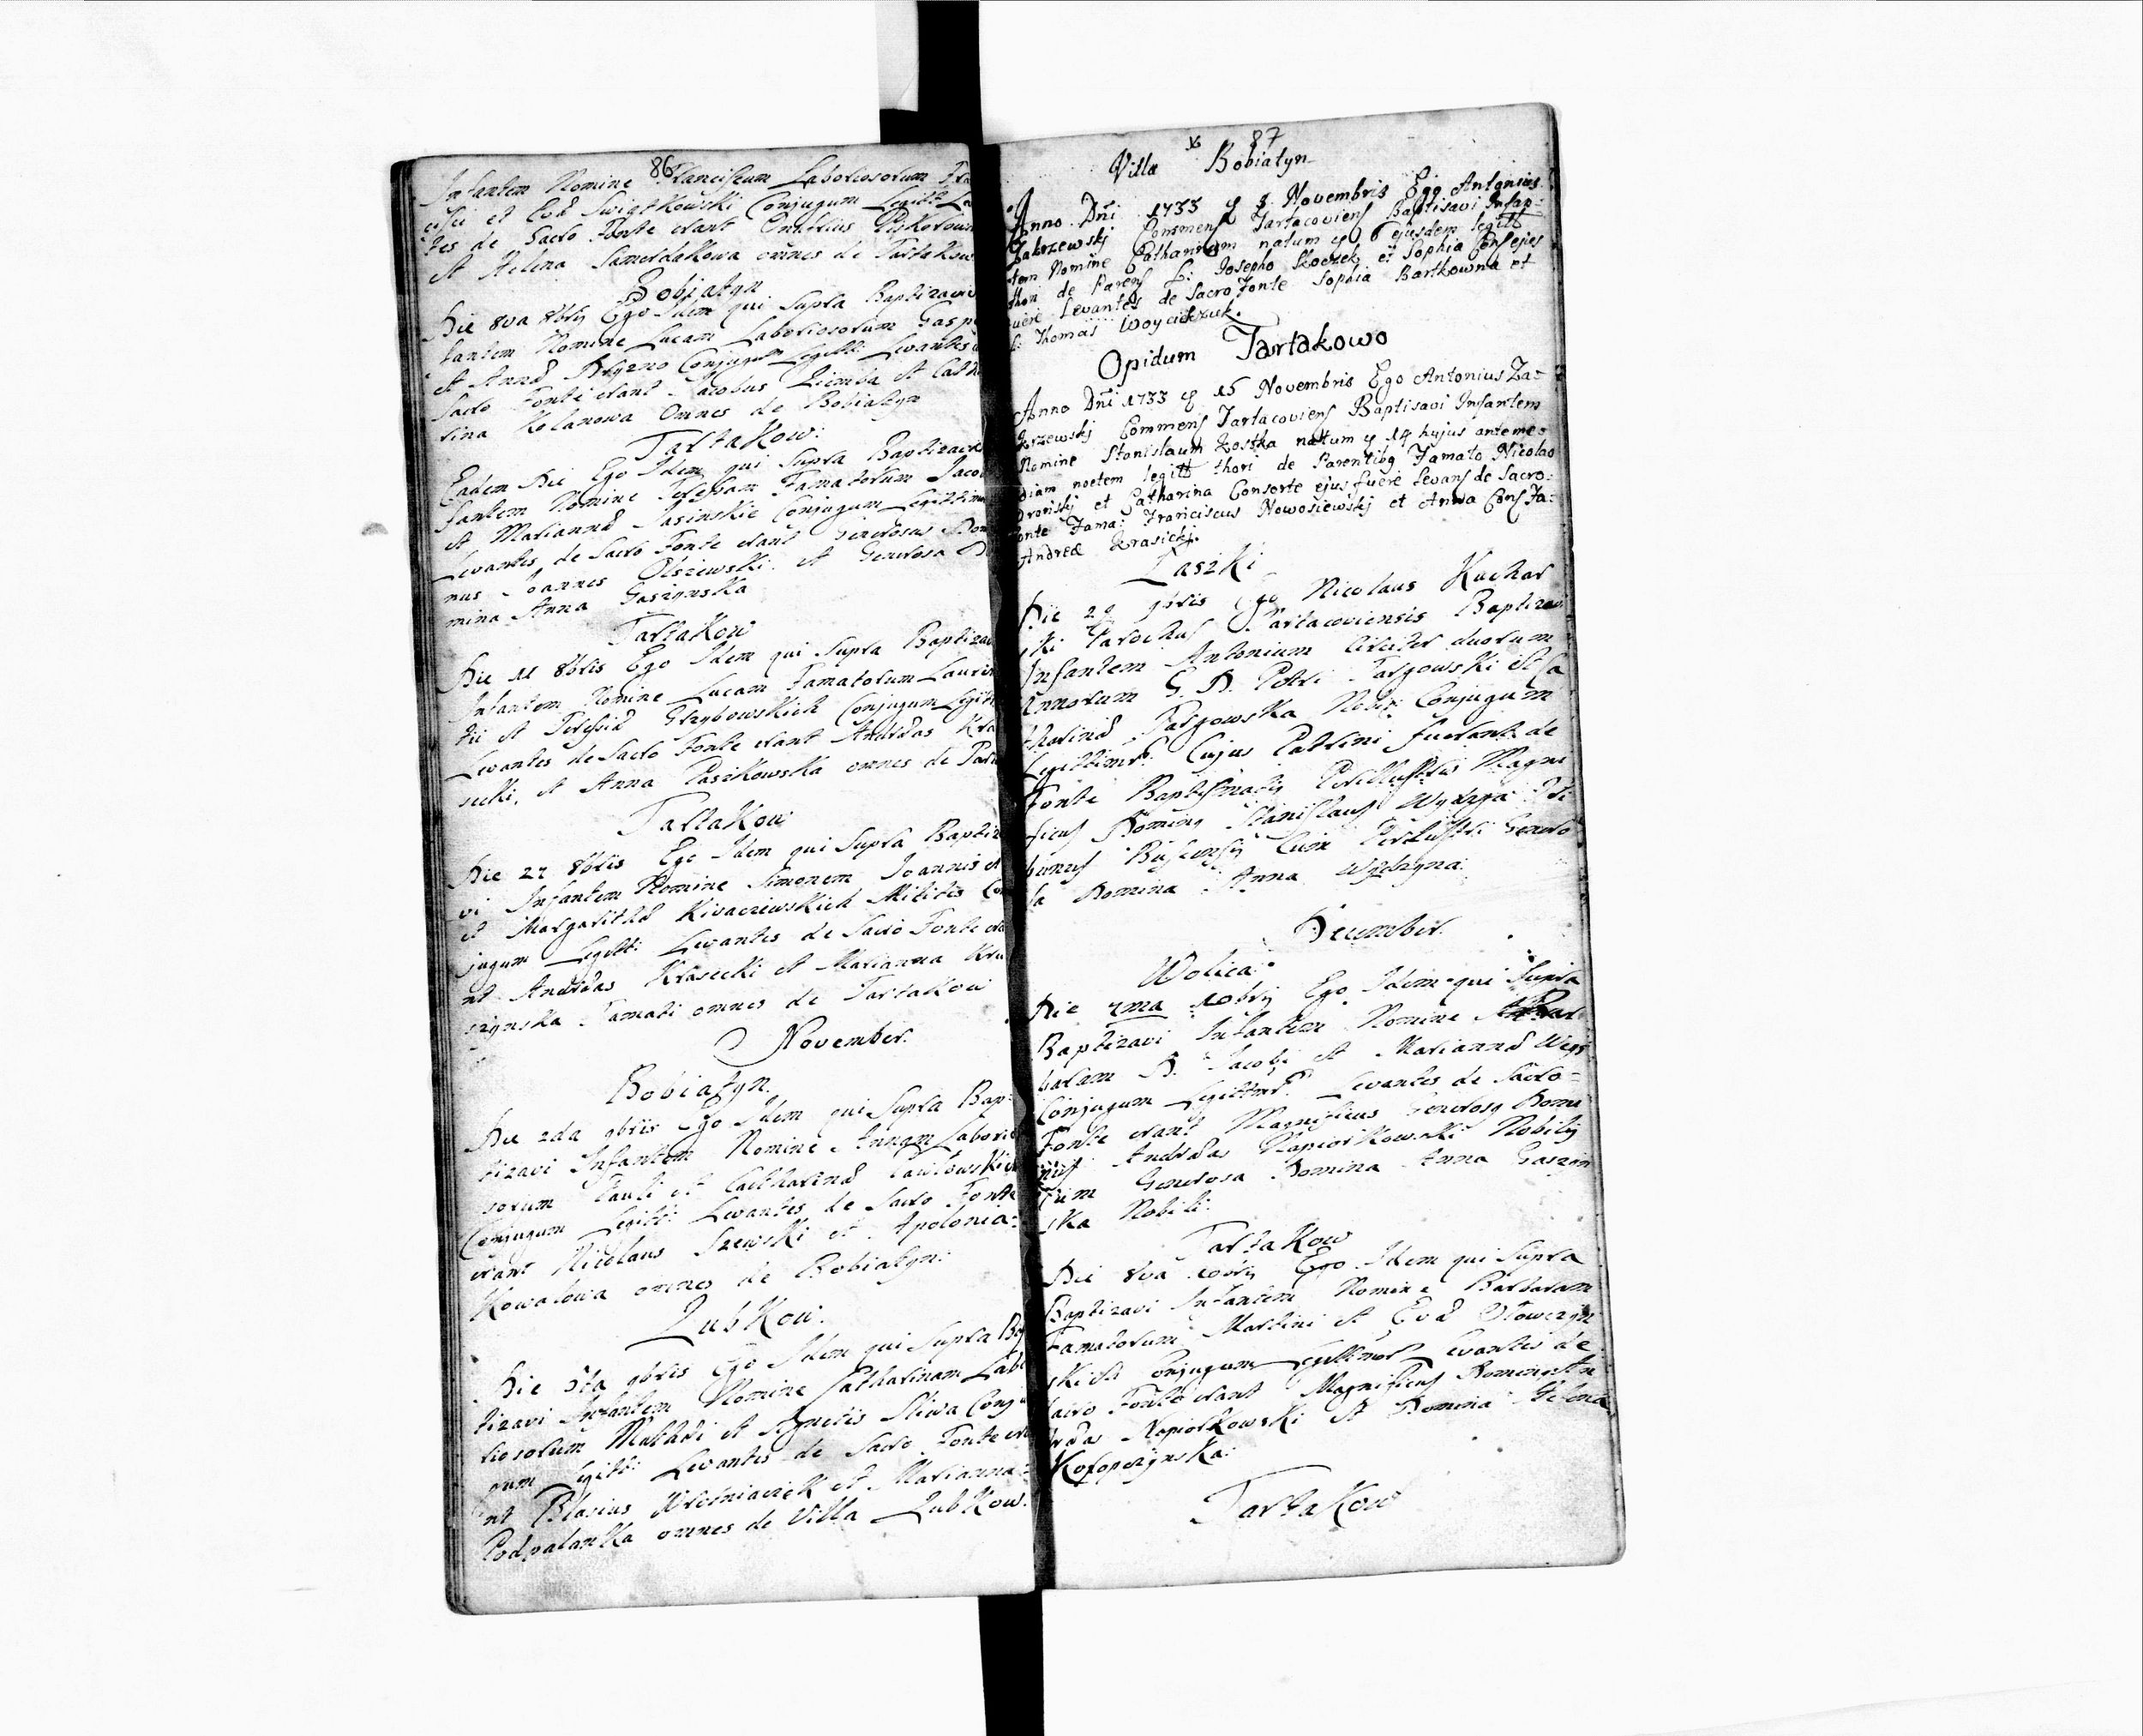 86
Infantem Nomine Franciscum Laboriosorum Fra
cisci et Evæ Swiątkowski Conjugum Legitt: Le
tes de Sacro Fonte erant
et Helena omnes de Tartakow
Bobiatyn
Die 8va 8bris Ego Idem qui supra Baptizavi
fantem Nomine Lucam Laboriosorum Gasp
et Annæ Conjugum Legitt: Levantes
Sacro Fonte erant Jacobus Ziemba et Cath
rina Kolanowa Omnes de Bobiatyn
Tartakow:
Eadem Die Ego Idem qui supra Baptizavi
fantem Nomine Teressam Famatorum Jacob
et Mariannæ Jasinskie Conjugum Legittim
Levantes de Sacro Fonte erant Generosus Dom
nus Joannes Olszewski et Generosa D
mina Anna Gaszynska
Tartakow
Die 11 8bris Ego Idem qui supra Baptizav
Infantem Nomine Lucam Famatorum Lauren
tii et Teressiæ Grzybowskich Conjugum Legitt
Levantes de Sacro Fonte erant Andræas Kra
sicki, et Anna Paszkowska omnes de
Tartakow
Die 22 8bris Ego Idem qui supra Baptiza
vi Infantem Nomine Simonem Joannis et
et Margarithæ Kiwaczewskich Militis Con
jugum Legitt: Levantes de Sacro Fonte era
nt Andræas Krasicki et Marianna Kru
szynska Famati omnes de Tartakow
November.
Bobiatyn.
Die 2da 9bris Ego Idem qui supra Bap-
tizavi Infantem Nomine Annam Laborio
sorum Pauli et Catharinæ
Conjugum Legitt: Levantes de Sacro Fonte
erant Nicolaus Szewski et Apolonia
Kowalowa omnes de Bobiatyn:
Lubkow.
Die 5ta 9bris Ego Idem qui supra Bap
tizavi Infantem Nomine Catharinam Labo
riosorum Mathæi et Agnetis Sliwa Conju
gum Legitt: Levantes de Sacro Fonte era
nt Blasius et Marianna
Podpalanka omnes de Villa Lubkow.
87
Villa Bobiatyn
Anno Dni 1733 8 Novembris Ego Antonius
Zakrzewski Commens Tartacoviens Baptisavi Infan-
tem Nomine Catharinam natum 6 ejusdem legitt
thori de Parens L: Josepho Skoczek et Sophia Cons ejus
fuere Levantes de Sacro Fonte Sophia Bartkowna et
L: Thomas Woyciszuk.
Opidum Tartakowo
Anno Dni 1733 15 Novembris Ego Antonius Za-
krzewskj Commens Tartacoviens Baptisavi Infantem
Nomine Stanislaum Kostka natum 14 hujus anteme-
diam noctem legitt thori de Parentibg Famato Nicolao
et Catharina Consorte ejus fuere Levans de Sacro-
Fonte Fama: Franciscus Nowosiewskj et Anna Cons Fa-
Andreæ Krasickj.
Laszki
Die 29 9bris Ego Nicolaus Kuchar
ski Parochus Tartacoviensis Baptizavi
Infantem Antonium Circiter duorum
Annorum G. D. Petri Targowski et Ca
tharinæ Targowska Nobi: Conjugum
Legittim: Cujus Patrini fuerunt de
Fonte Baptismatis Perillustris Magni
ficus Dominus Stanislaus Wydzga Tri
bunus Cum Perillustri Genero
sa Domina Anna Wydzgna:
December.
Wolica
Die 7ma 10bris Ego Idem qui Supra
Baptizavi Infantem Nomine Bar
baram D. Jacobi et Mariannæ
Conjugum Legittim: Levantes de Sacro-
Fonte erant Magnificus Generosus Domi
nus Andræas Napiorkowski Nobilis
Cum Generosa Domina Anna Gaszyn
ska Nobili:
Tartakow
Die 8va 10bris Ego Idem qui supra
Baptizavi Infantem Nomine Barbaram
Famatorum Martini et Evæ
skich Conjugum Legittimor Levantes de
Sacro Fonte erant Magnificus Dominus An
dræas Napiorkowski et Domina Helena
Tartakow